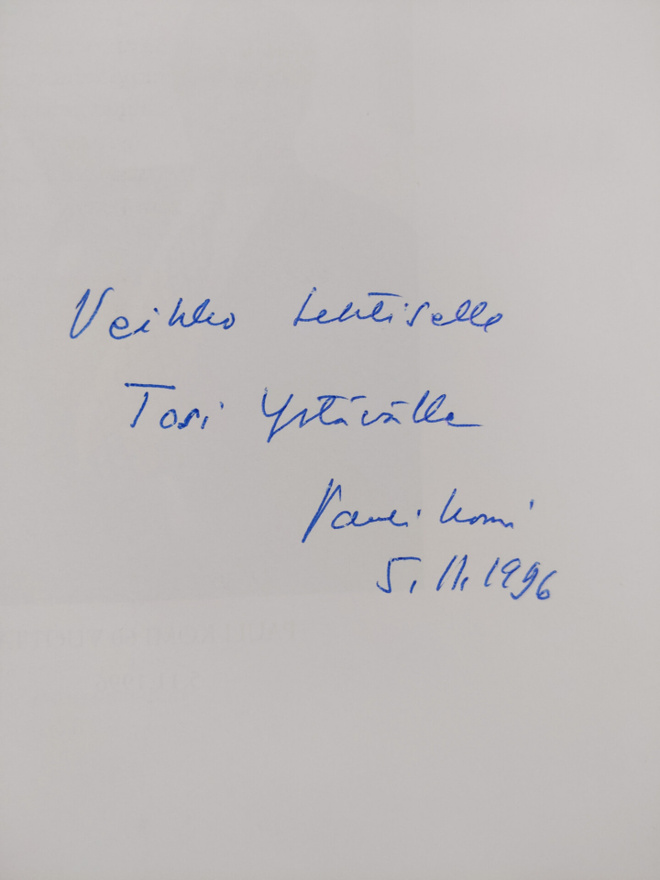 Veikko Lehtiselle
Tosi Ystävälle
Pauli Komi
5.11.1996